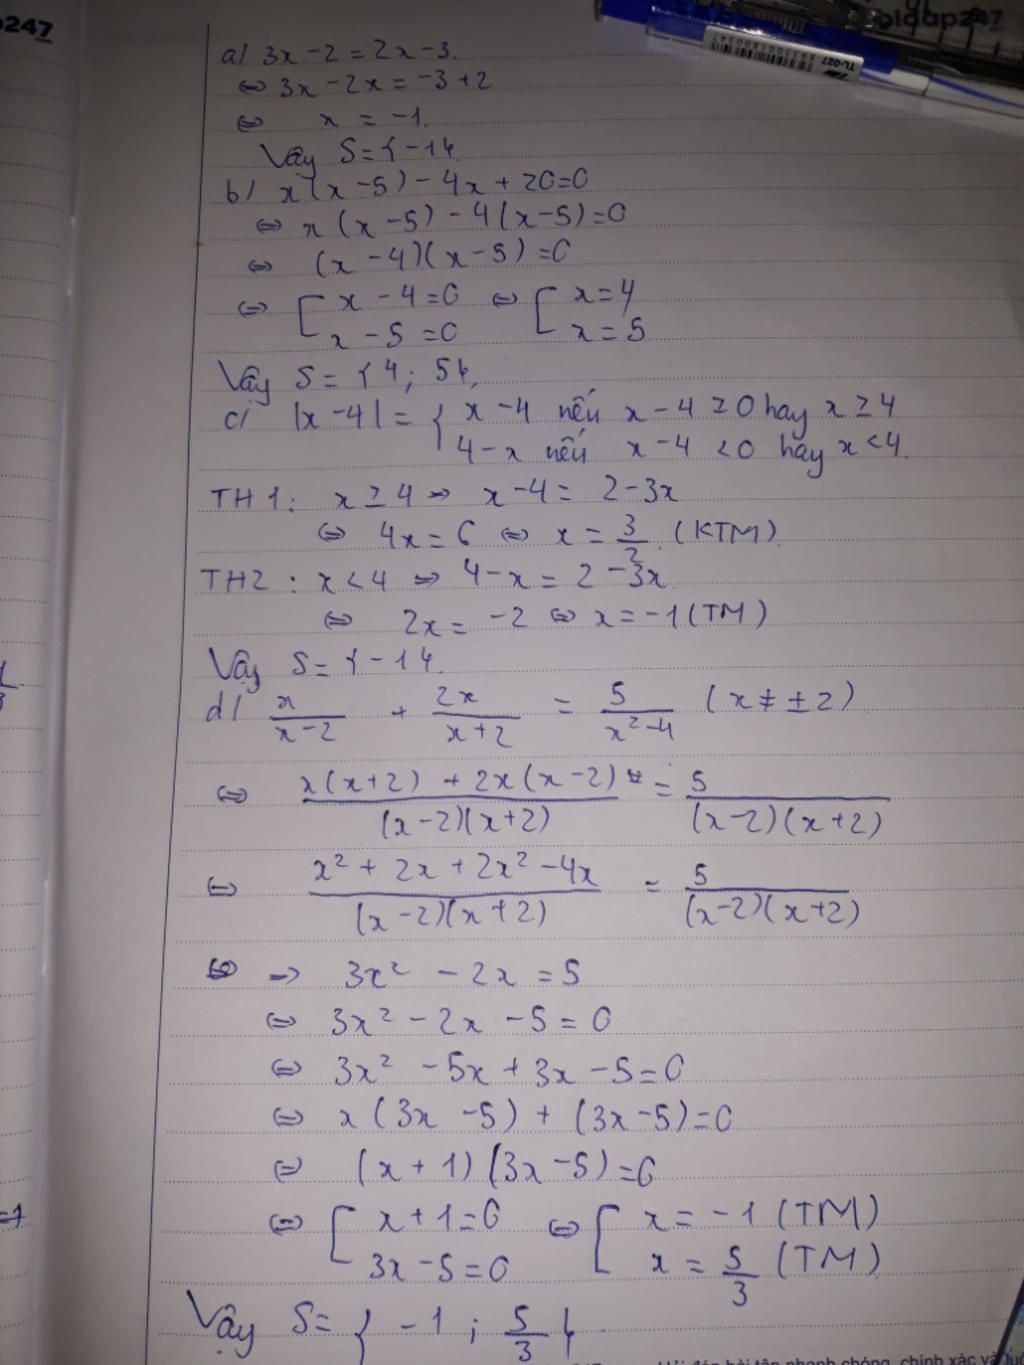 247
oidap247
TL-027
a) 3x - 2 = 2x - 3.
⇔ 3x - 2x = -3 + 2
⇔ x = -1.
Vậy S = {-1}.
b) x(x - 5) - 4x + 20 = 0
⇔ x(x - 5) - 4(x - 5) = 0
⇔ (x - 4)(x - 5) = 0
⇔ [ x - 4 = 0 ⇔ [ x = 4
x - 5 = 0 x = 5
Vậy S = {4; 5}.
c) |x - 4| = { x - 4 nếu x - 4 ≥ 0 hay x ≥ 4
4 - x nếu x - 4 < 0 hay x < 4.
TH1: x ≥ 4 ⇒ x - 4 = 2 - 3x
⇔ 4x = 6 ⇔ x = 3/2. (KTM)
TH2: x < 4 ⇒ 4 - x = 2 - 3x
⇔ 2x = -2 ⇔ x = -1 (TM)
Vậy S = {-1}.
d) x/(x - 2) + 2x/(x + 2) = 5/(x² - 4) (x ≠ ±2)
⇔ (x(x + 2) + 2x(x - 2))/((x - 2)(x + 2)) = 5/((x - 2)(x + 2))
⇔ (x² + 2x + 2x² - 4x)/((x - 2)(x + 2)) = 5/((x - 2)(x + 2))
⇒ 3x² - 2x = 5
⇔ 3x² - 2x - 5 = 0
⇔ 3x² - 5x + 3x - 5 = 0
⇔ x(3x - 5) + (3x - 5) = 0
⇔ (x + 1)(3x - 5) = 0
⇔ [ x + 1 = 0 ⇔ [ x = -1 (TM)
3x - 5 = 0 x = 5/3 (TM)
Vậy S = {-1; 5/3}.
=1
Hỏi đáp bài tập nhanh chóng, chính xác và